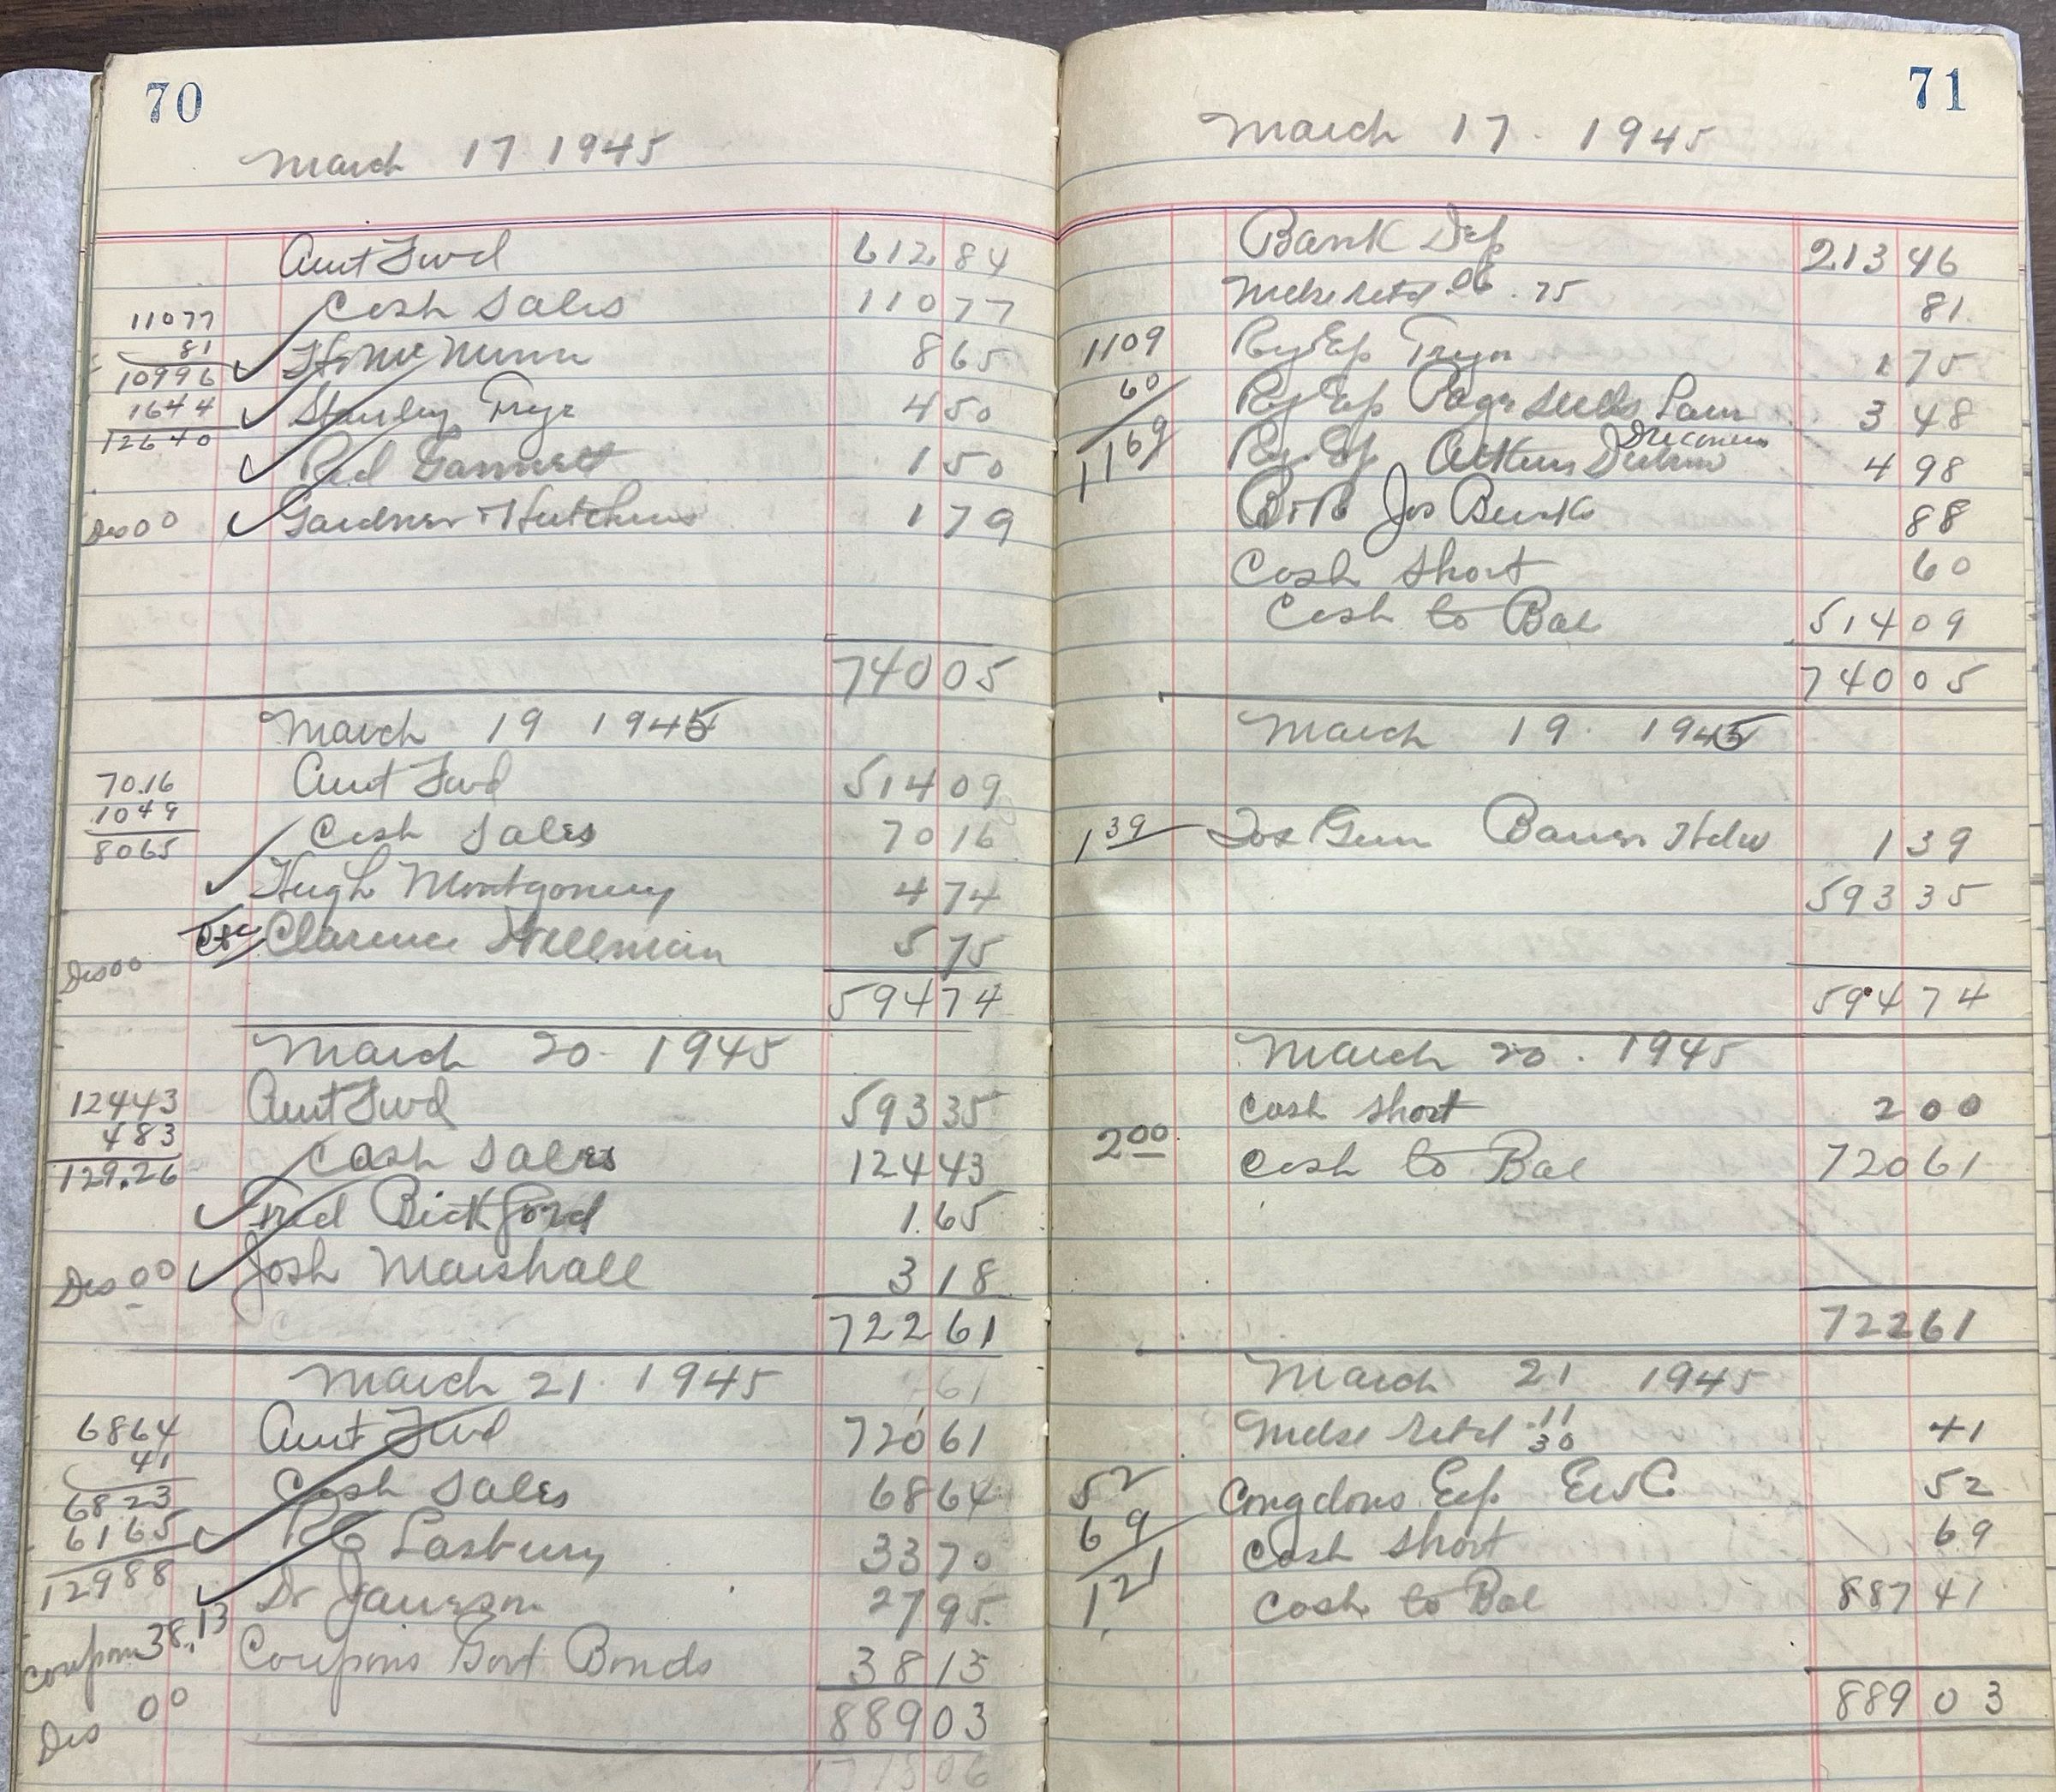 70
March 17 1945
Amt Fwd 612 84
Cash Sales 110 77
110 77
81
109 96
H. Mc Nunn 8 65
16 44
126 40
Stanley Frye 4 50
Red Gannett 1 50
Dis 00 Gardner + Hutchins 1 79
740 05
March 19 1945
70.16
10 49
80 65
Amt Fwd 514 09
Cash Sales 70 16
Hugh Montgomery 4 74
Clarence Hellman 5 75
Dis 00
594 74
March 20 1945
124 43
4 83
129.26
Amt Fwd 593 35
Cash Sales 124 43
Fred Bickford 1.65
Dis 00 Josh Marshall 3 18
722 61
March 21. 1945
68 64
41
68 23
61 65
129 88
Amt Fwd 720 61
Cash Sales 68 64
RC Lasbury 33 70
Dr 27 95
Coupon 38.13 Coupons Govt Bonds 38 13
Dis 00
889 03
71
March 17. 1945
Bank Dep 213 46
Mdse retd 06 .75 81
11 09
60
11 69
Ry Exp 1 75
Ry Exp Page Seeds 3 48
Ry Exp 4 98
B+B Jos Burke 88
Cash Short 60
Cash to Bal 514 09
740 05
March 19. 1945
1 39 1 39
593 35
594 74
March 20. 1945
Cash Short 2 00
2 00 Cash to Bal 720 61
722 61
March 21 1945
Mdse Retd .11 .30 41
52 Congdons Exp 52
69 Cash Short 69
1 21 Cash to Bal 887 41
889 03